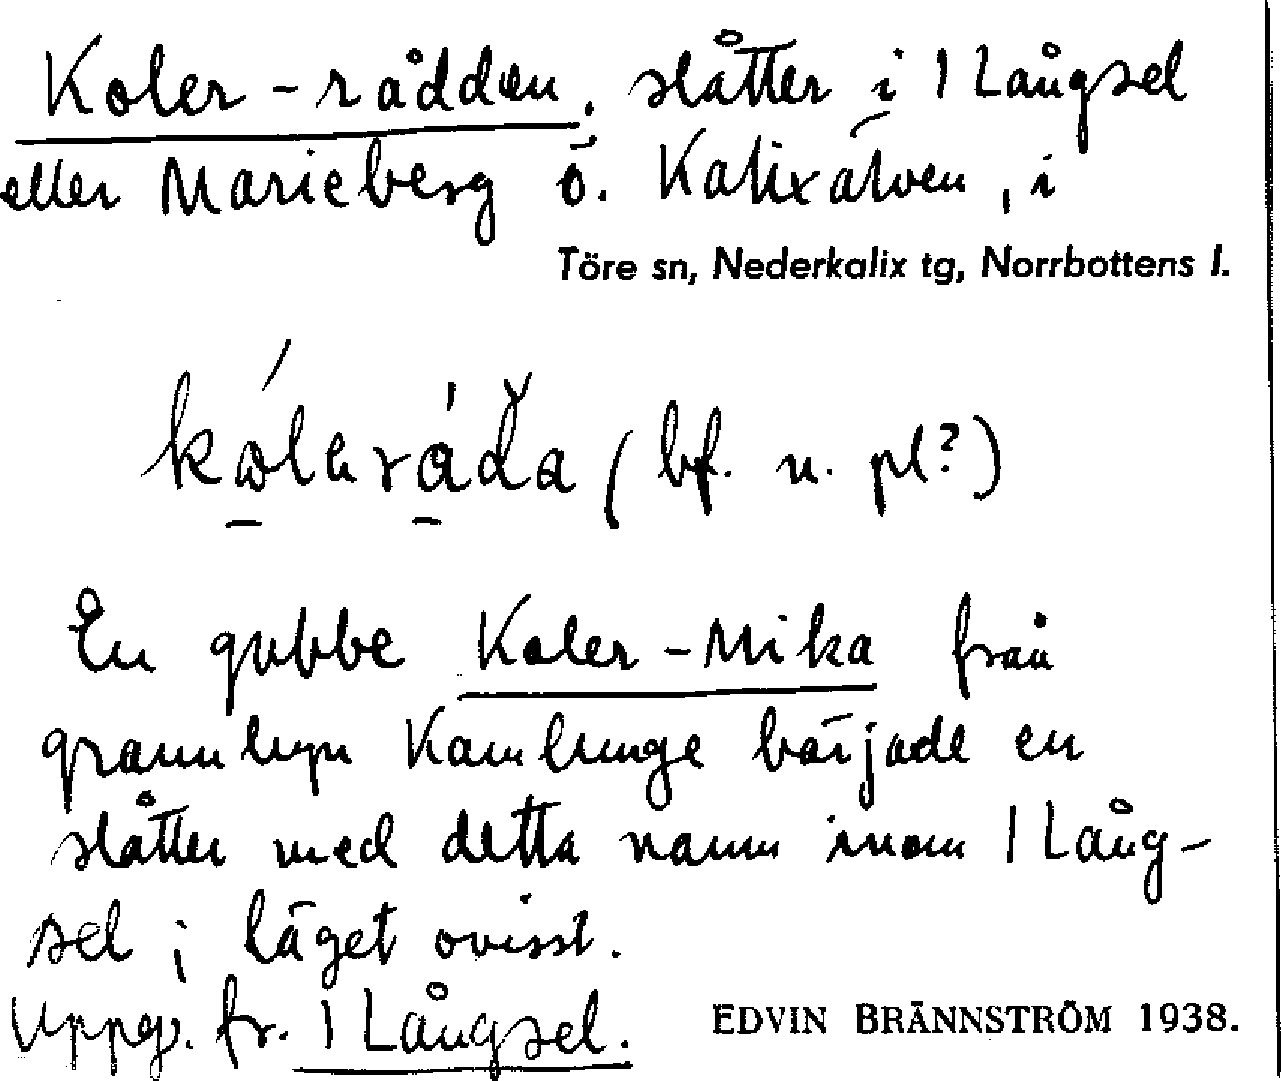 Koler-rådden. slåtter i 1 Långsel
eller Marieberg ö. Kalixälven, i
Töre sn, Nederkalix tg, Norrbottens l.
(bf. n. pl?)
En gubbe Koler-Mika från
grannbyn Kamlunge började en
slåtter med detta namn inom 1 Lång-
sel; läget ovisst.
Uppg. fr. 1 Långsel. EDVIN BRÄNNSTRÖM 1938.